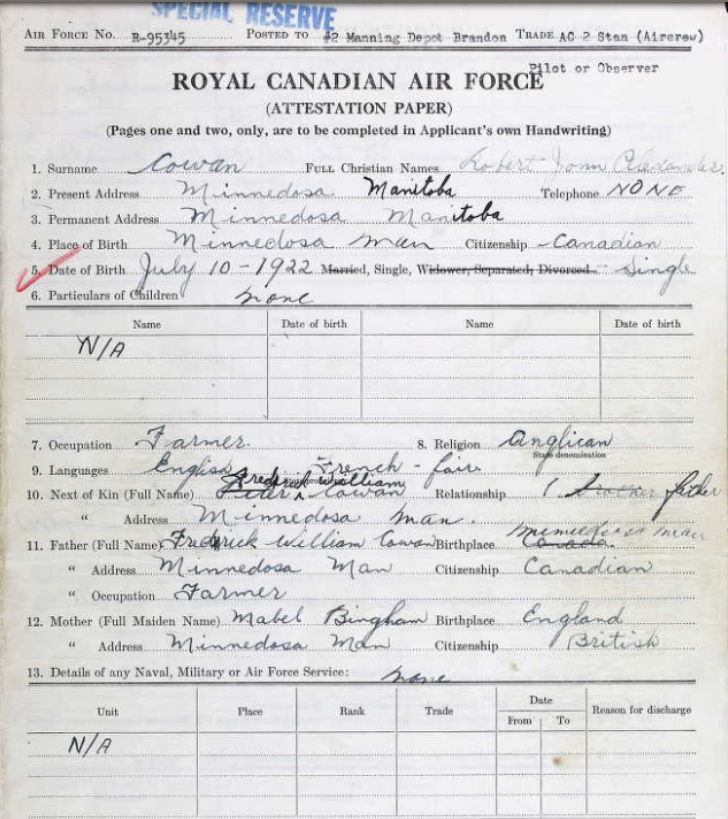 SPECIAL RESERVE
AIR FORCE NO. R-95345 POSTED TO #2 Manning Depot Brandon TRADE AC 2 Stan (Aircrew)
Pilot or Observer
ROYAL CANADIAN AIR FORCE
(ATTESTATION PAPER)
(Pages one and two, only, are to be completed in Applicant's own Handwriting)
1. Surname Cowan FULL Christian Names Robert John Alexander.
2. Present Address Minnedosa Manitoba Telephone NONE
3. Permanent Address Minnedosa Manitoba
4. Place of Birth Minnedosa Man Citizenship Canadian
5. Date of Birth July 10-1922 Married, Single, Widower, Separated, Divorced Single
6. Particulars of Children none
Name Date of birth Name Date of birth
N/A
7. Occupation Farmer. 8. Religion Anglican
State denomination
9. Languages English French - fair
Frederick William
10. Next of Kin (Full Name) Peter Cowan Relationship brother father
" Address Minnedosa Man.
11. Father (Full Name) Frederick William Cowan Birthplace Canada. Minnedosa Man
" Address Minnedosa Man Citizenship Canadian
" Occupation Farmer
12. Mother (Full Maiden Name) Mabel Bingham Birthplace England
" Address Minnedosa Man Citizenship British
13. Details of any Naval, Military or Air Force Service: none
Unit Place Rank Trade Date From To Reason for discharge
N/A